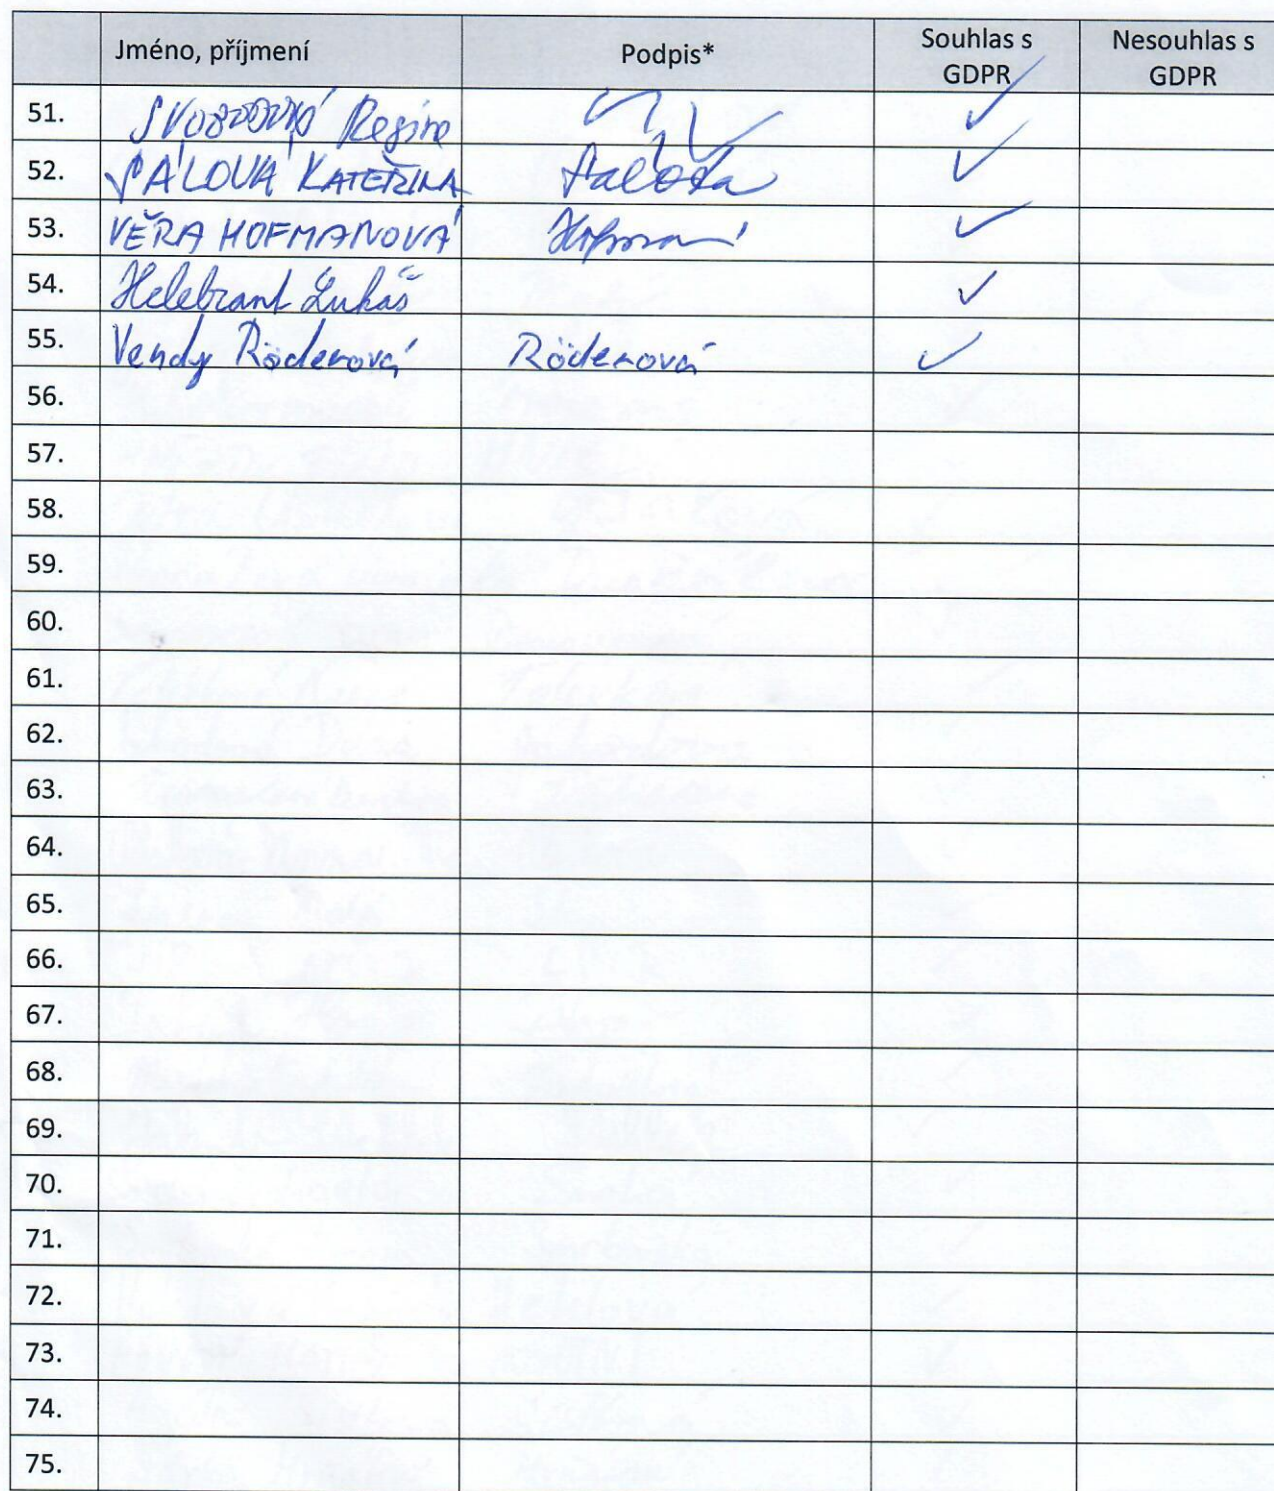 Jméno, příjmení Podpis* Souhlas s GDPR Nesouhlas s GDPR
51. Svobodová Regina
52. ŠÁLOVÁ KATEŘINA
53. VĚRA HOFMANOVÁ
54. Helebrant Lukáš
55. Vendy Röderová Röderová
56.
57.
58.
59.
60.
61.
62.
63.
64.
65.
66.
67.
68.
69.
70.
71.
72.
73.
74.
75.